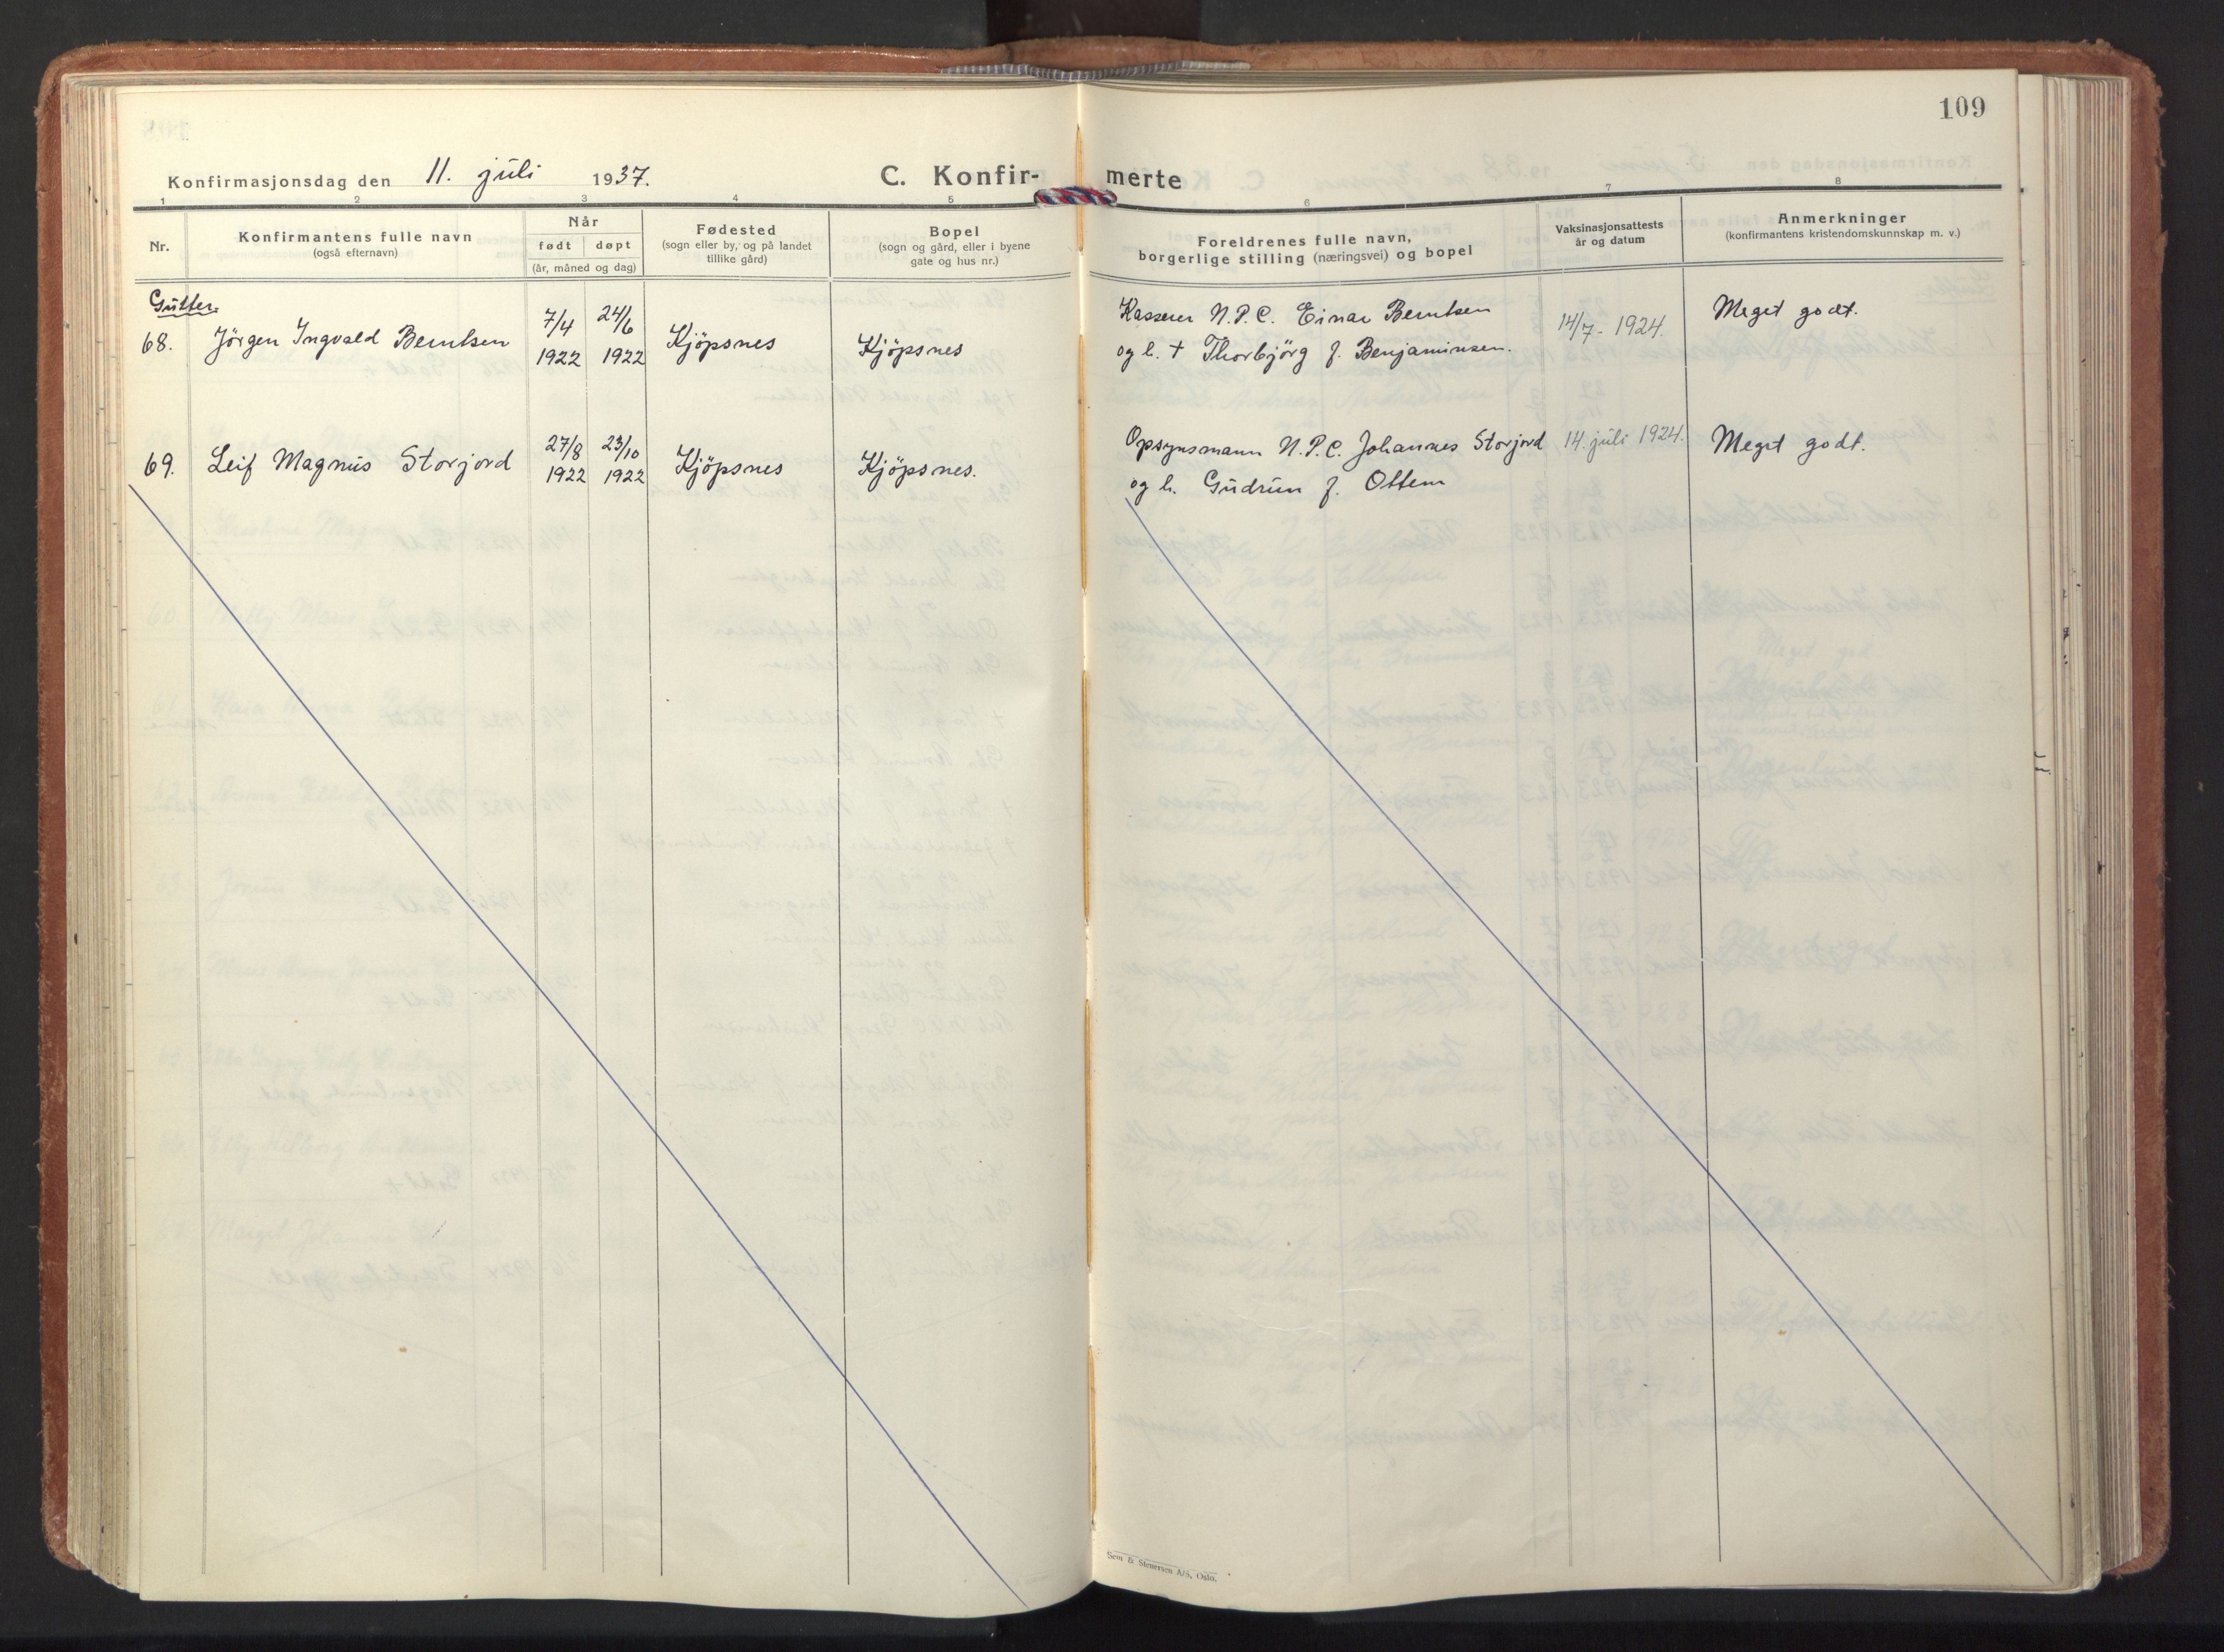 109
Konfirmasjonsdag den 11. juli 1937.
C. Konfir-
merte
1 2 3 4 5 6 7 8
Nr.
Konfirmantens fulle navn
(også efternavn)
Når
født døpt
(år, måned og dag)
Fødested
(sogn eller by, og på landet
tillike gård)
Bopel
(sogn og gård, eller i byene
gate og hus nr.)
Foreldrenes fulle navn,
borgerlige stilling (næringsvei) og bopel
Vaksinasjonsattests
år og datum
Anmerkninger
(konfirmantens kristendomskunnskap m. v.)
Gutter.
68. Jörgen Ingvald Berntsen
7/4 1922
24/6 1922
Kjöpsnes
Kjöpsnes
Kasserer N.P.C. Einar Berntsen
og h. + Thorbjörg f. Benjaminsen.
14/7 - 1924.
Meget godt.
69. Leif Magnus Storjord
27/8 1922
23/10 1922
Kjöpsnes
Kjöpsnes.
Opsynsmann N.P.C. Johannes Storjord
og h. Gudrun f. Ottem
14. juli 1924.
Meget godt.
Sem & Stenersen A/S, Oslo.